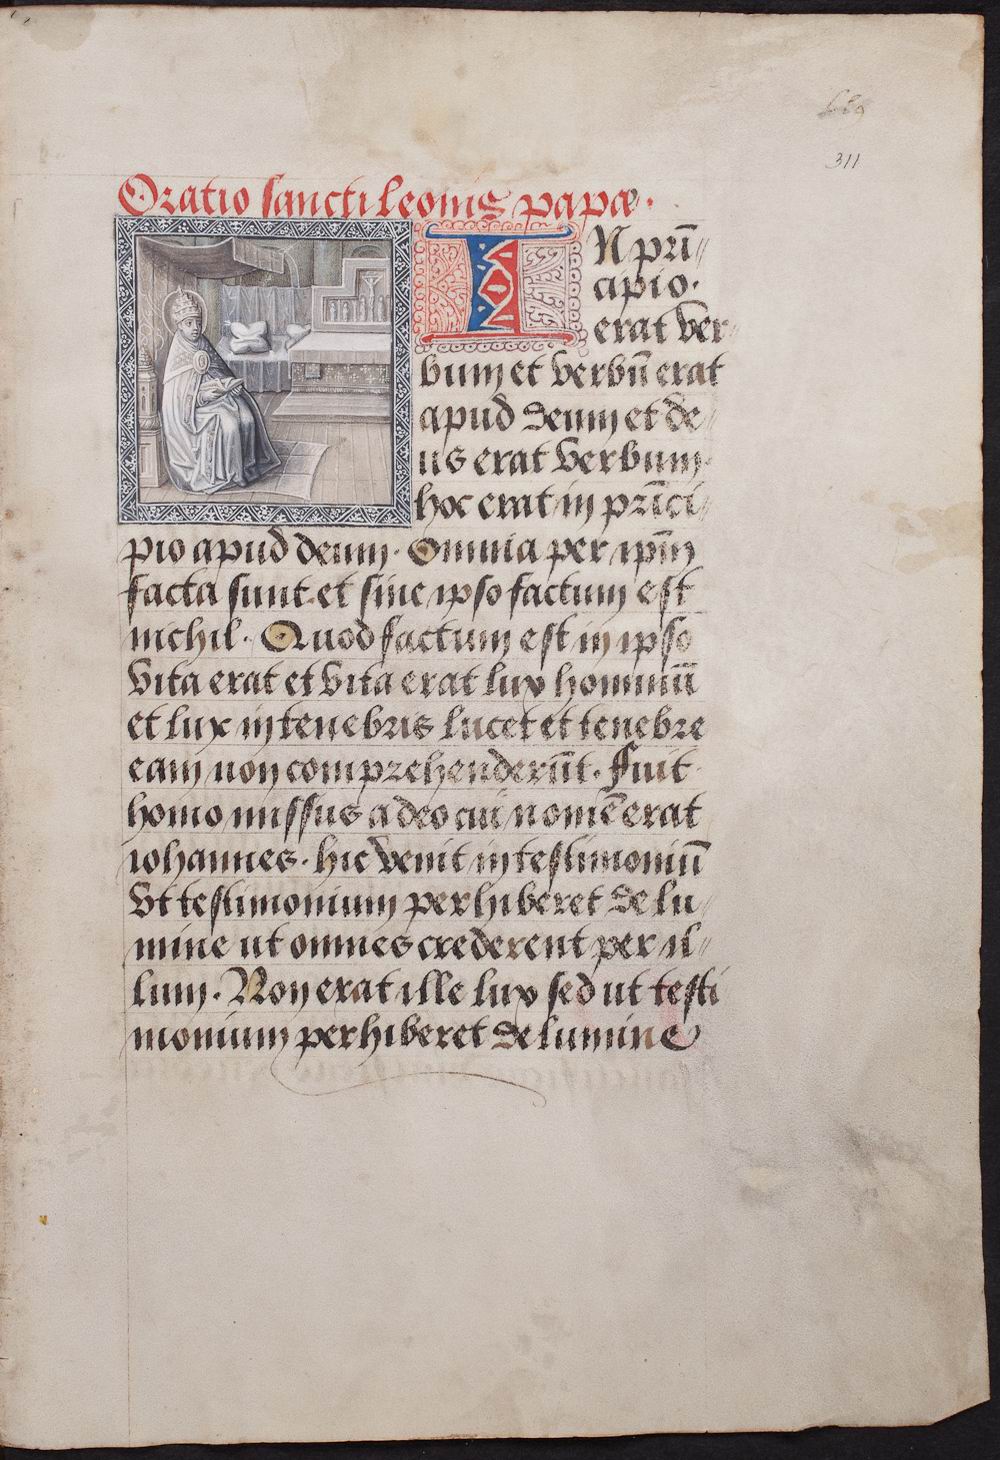 311
Oratio sancti leonis papæ.
IN prĩ//
cipio.
erat ver
bum et verbũ erat
apud deum et de//
us erat verbum.
hoc erat in prĩci//
pio apud deum. Omnia per ipm̃
facta sunt et sine ipso factum est
nichil. Quod factum est in ipso
vita erat et vita erat lux hominũ
et lux in tenebris lucet et tenebre
eam non comprehenderũt. fuit
homo missus a deo cui nomẽ erat
iohannes. hic venit in testimoniũ
vt testimonium perhiberet de lu//
mine ut omnes crederent per il//
lum. Non erat ille lux sed ut testi
monium perhiberet de lumine